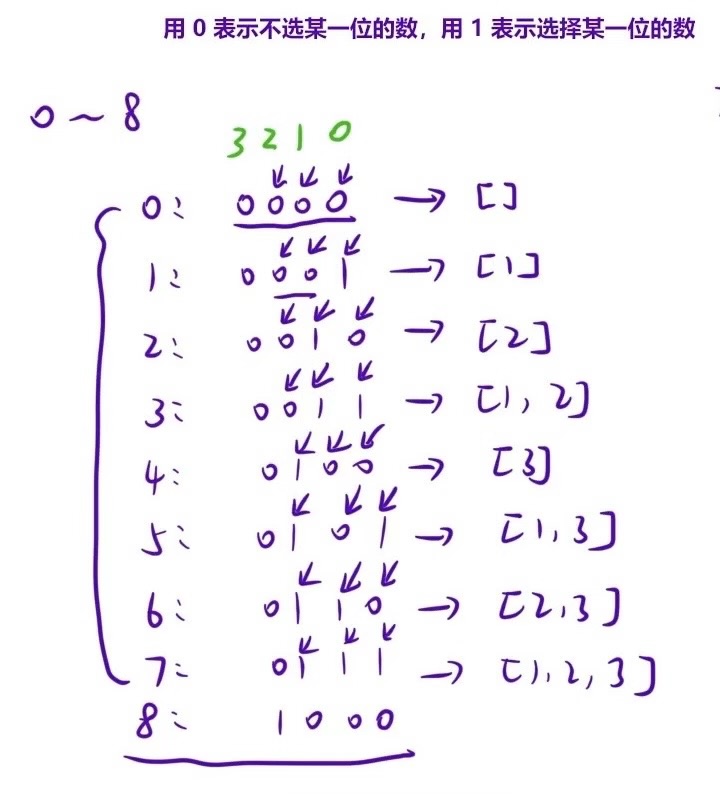 用 0 表示不选某一位的数，用 1 表示选择某一位的数
0 ~ 8
3 2 1 0
0: 0 0 0 0 → []
1: 0 0 0 1 → [1]
2: 0 0 1 0 → [2]
3: 0 0 1 1 → [1, 2]
4: 0 1 0 0 → [3]
5: 0 1 0 1 → [1, 3]
6: 0 1 1 0 → [2, 3]
7: 0 1 1 1 → [1, 2, 3]
8: 1 0 0 0